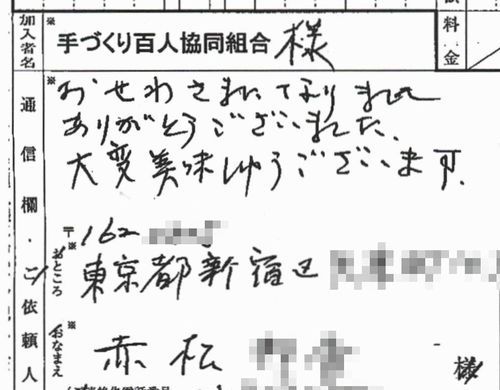 加入者名
※
手づくり百人協同組合 様
料金
通信欄・ご依頼人
※
おせわさまになりました
ありがとうございました.
大変美味しゅうございます.
〒162
※
おところ
東京都新宿区
※
おなまえ
赤松
様